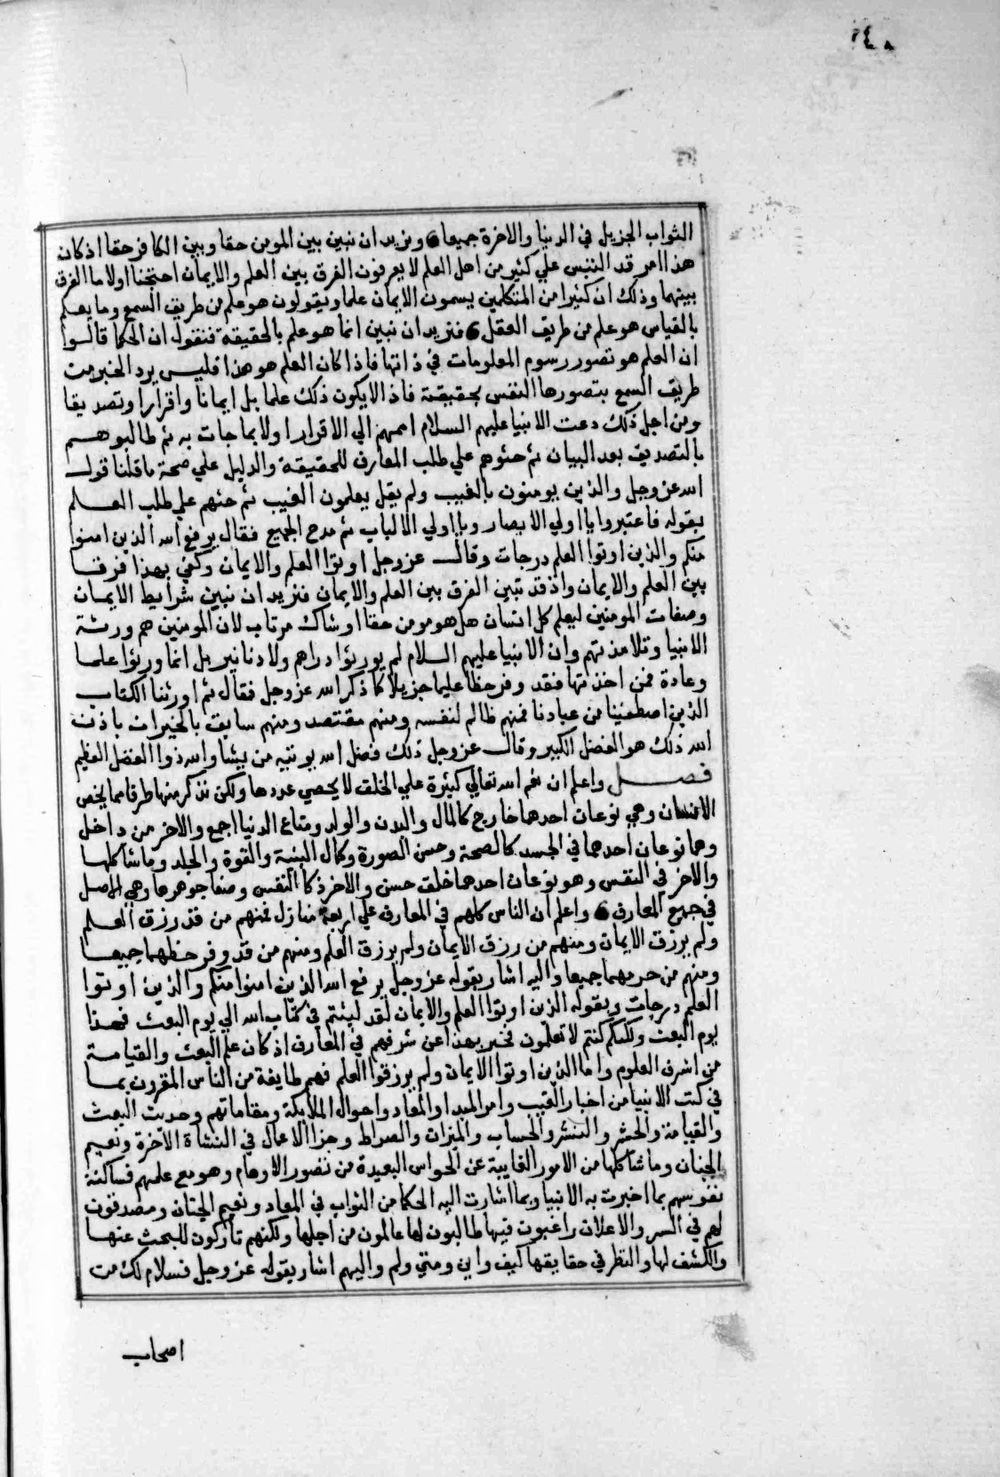 الثواب الجزيل في الدنيا والاخرة جميعا ونريد ان نبين بين المومن حقا وبين الكافر حقا اذ كان
هذا امر قد التبس علي كثير من اهل العلم لا يعرفون الفرق بين العلم والايمان احتجنا اولا ما الفرق
بينهما وذلك ان كثيرا من المتكلمين يسمون الايمان علما ويقولون هو علم من طريق السمع وما يعلم
بالقياس هو علم من طريق العقل فنريد ان نبين انما هو علم بالحقيقة فنقول ان الحكما قالوا
ان العلم هو تصور رسوم المعلومات في ذاتها فاذا كان العلم هو هذا فليس يرد الخبر من
طريق السمع بتصورها النفس بحقيقته فاذ الايكون ذلك علما بل ايمانا واقرارا وتصديقا
ومن اجل ذلك دعت الانبيا عليهم السلام اممهم الي الاقرار اولا بما جات به ثم طالبوهم
بالتصديق بعد البيان ثم حثوهم علي طلب المعارف للحقيقة والدليل علي صحة ما قلنا قول
الله عز وجل والذين يومنون بالغيب ولم يقل يعلمون الغيب ثم حثهم علي طلب العلم
بقوله فاعتبروا يا اولي الابصار ويا اولي الالباب ثم مدح الجميع فقال يرفع الله الذين امنوا
منكم والذين اوتوا العلم درجات وقال عز وجل اوتوا العلم والايمان وكفي بهذا فرقا
بين العلم والايمان واذ قد تبين الفرق بين العلم والايمان فنريد ان نبين شرايط الايمان
وصفات المومنين ليعلم كل انسان هل هو مومن حقا او شاك مرتاب لان المومنين هم ورثة
الانبيا وتلامذتهم وان الانبيا عليهم السلام لم يورثوا دراهم ولا دنانير بل انما ورثوا علما
وعادة فمن اخذ منها فقد وفر حظا عليما جزيلا كما ذكر الله عز وجل فقال ثم اورثنا الكتاب
الذين اصطفينا من عبادنا فمنهم ظالم لنفسه ومنهم مقتصد ومنهم سابق بالخيرات باذن
الله ذلك هو الفضل الكبير وقال عز وجل ذلك فضل الله يوتيه من يشا والله ذوا الفضل العظيم
فصل واعلم ان نعم الله تعالي كثيرة علي الخلق لا يحصي عددها ولكن نذكر منها طرقا مما يخص
الانسان وهي نوعان احدهما خارج كالمال والدن والولد ومتاع الدنيا اجمع والاخر من داخل
وهما نوعان احدهما في الجسد كالصحة وحسن الصورة وكمال البنية والقوة والجلد وما شاكلها
والاخر في النفس وهو نوعان احدهما خلق حسن والاخر ذكا النفس وصفا جوهرها وهي الاصل
في جميع المعارف واعلم ان الناس كلهم في المعارف علي اربعة منازل فمنهم من قد رزق العلم
ولم يرزق الايمان ومنهم من رزق الايمان ولم يرزق العلم ومنهم من قد وفر حظهما جميعا
ومنهم من حرمهما جميعا واليه اشار بقوله عز وجل يرفع الله الذين امنوا منكم والذين اوتوا
العلم درجات وبقوله الذين اوتوا العلم والايمان لقد لبثتم في كتاب الله الي يوم البعث فهذا
يوم البعث ولكنكم كنتم لا تعلمون نخبر بهذا عن شرفهم في المعارف اذ كان علم البعث والقيامة
من اشرف العلوم واما الذين اوتوا الايمان ولم يرزقوا العلم فهم طايفة من الناس المقرون بما
في كتب الانبيا من اخبار الغيب وامر المبدا والمعاد واحوال الملايكة ومقاماتهم وحديث البعث
والقيامة والحشر والنشر والحساب والميزان والصراط وجزا الاعمال في النشاة الاخرة ونعيم
الجنان وما شاكلها من الامور الغايبة عن الحواس البعيدة من تصور الاوهام وهو مع علمهم فساكنة
نفوسهم بما اخبرت به الانبيا وبما اشارت اليه الحكما من الثواب في المعاد ونعيم الجنان ومصدقون
لهم في السر والاعلان راغبون فيها طالبون لها عالمون من اجلها ولكنهم تاركون للبحث عنها
والكشف لها والنظر في حقايقها كيف واين ومتي ولم واليهم اشار بقوله عز وجل فسلام لك من
اصحاب